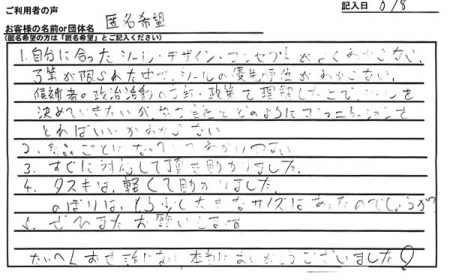 ご利用者の声
記入日 6/8
お客様の名前or団体名 匿名希望
(匿名希望の方は「匿名希望」とご記入ください)
1.自分に合ったシール・デザイン・コンセプトがよくわからない。
予算が限られた中で、シールの優先順位がわからない。
候補者の政治活動の方針・政策を理解した上でシールを
決めていきたいが どのようにコミュニケーションを
とればいいかわからない
2. 商品ごとになっていてわかりやすい
3. すぐに対応して頂き助かりました。
4. タスキは、軽くて助かりました。
のぼりは、もう少し大きなサイズはあったのでしょうか?
5. ぜひまたお願いします
たいへんお世話になり、本当にありがとうございました